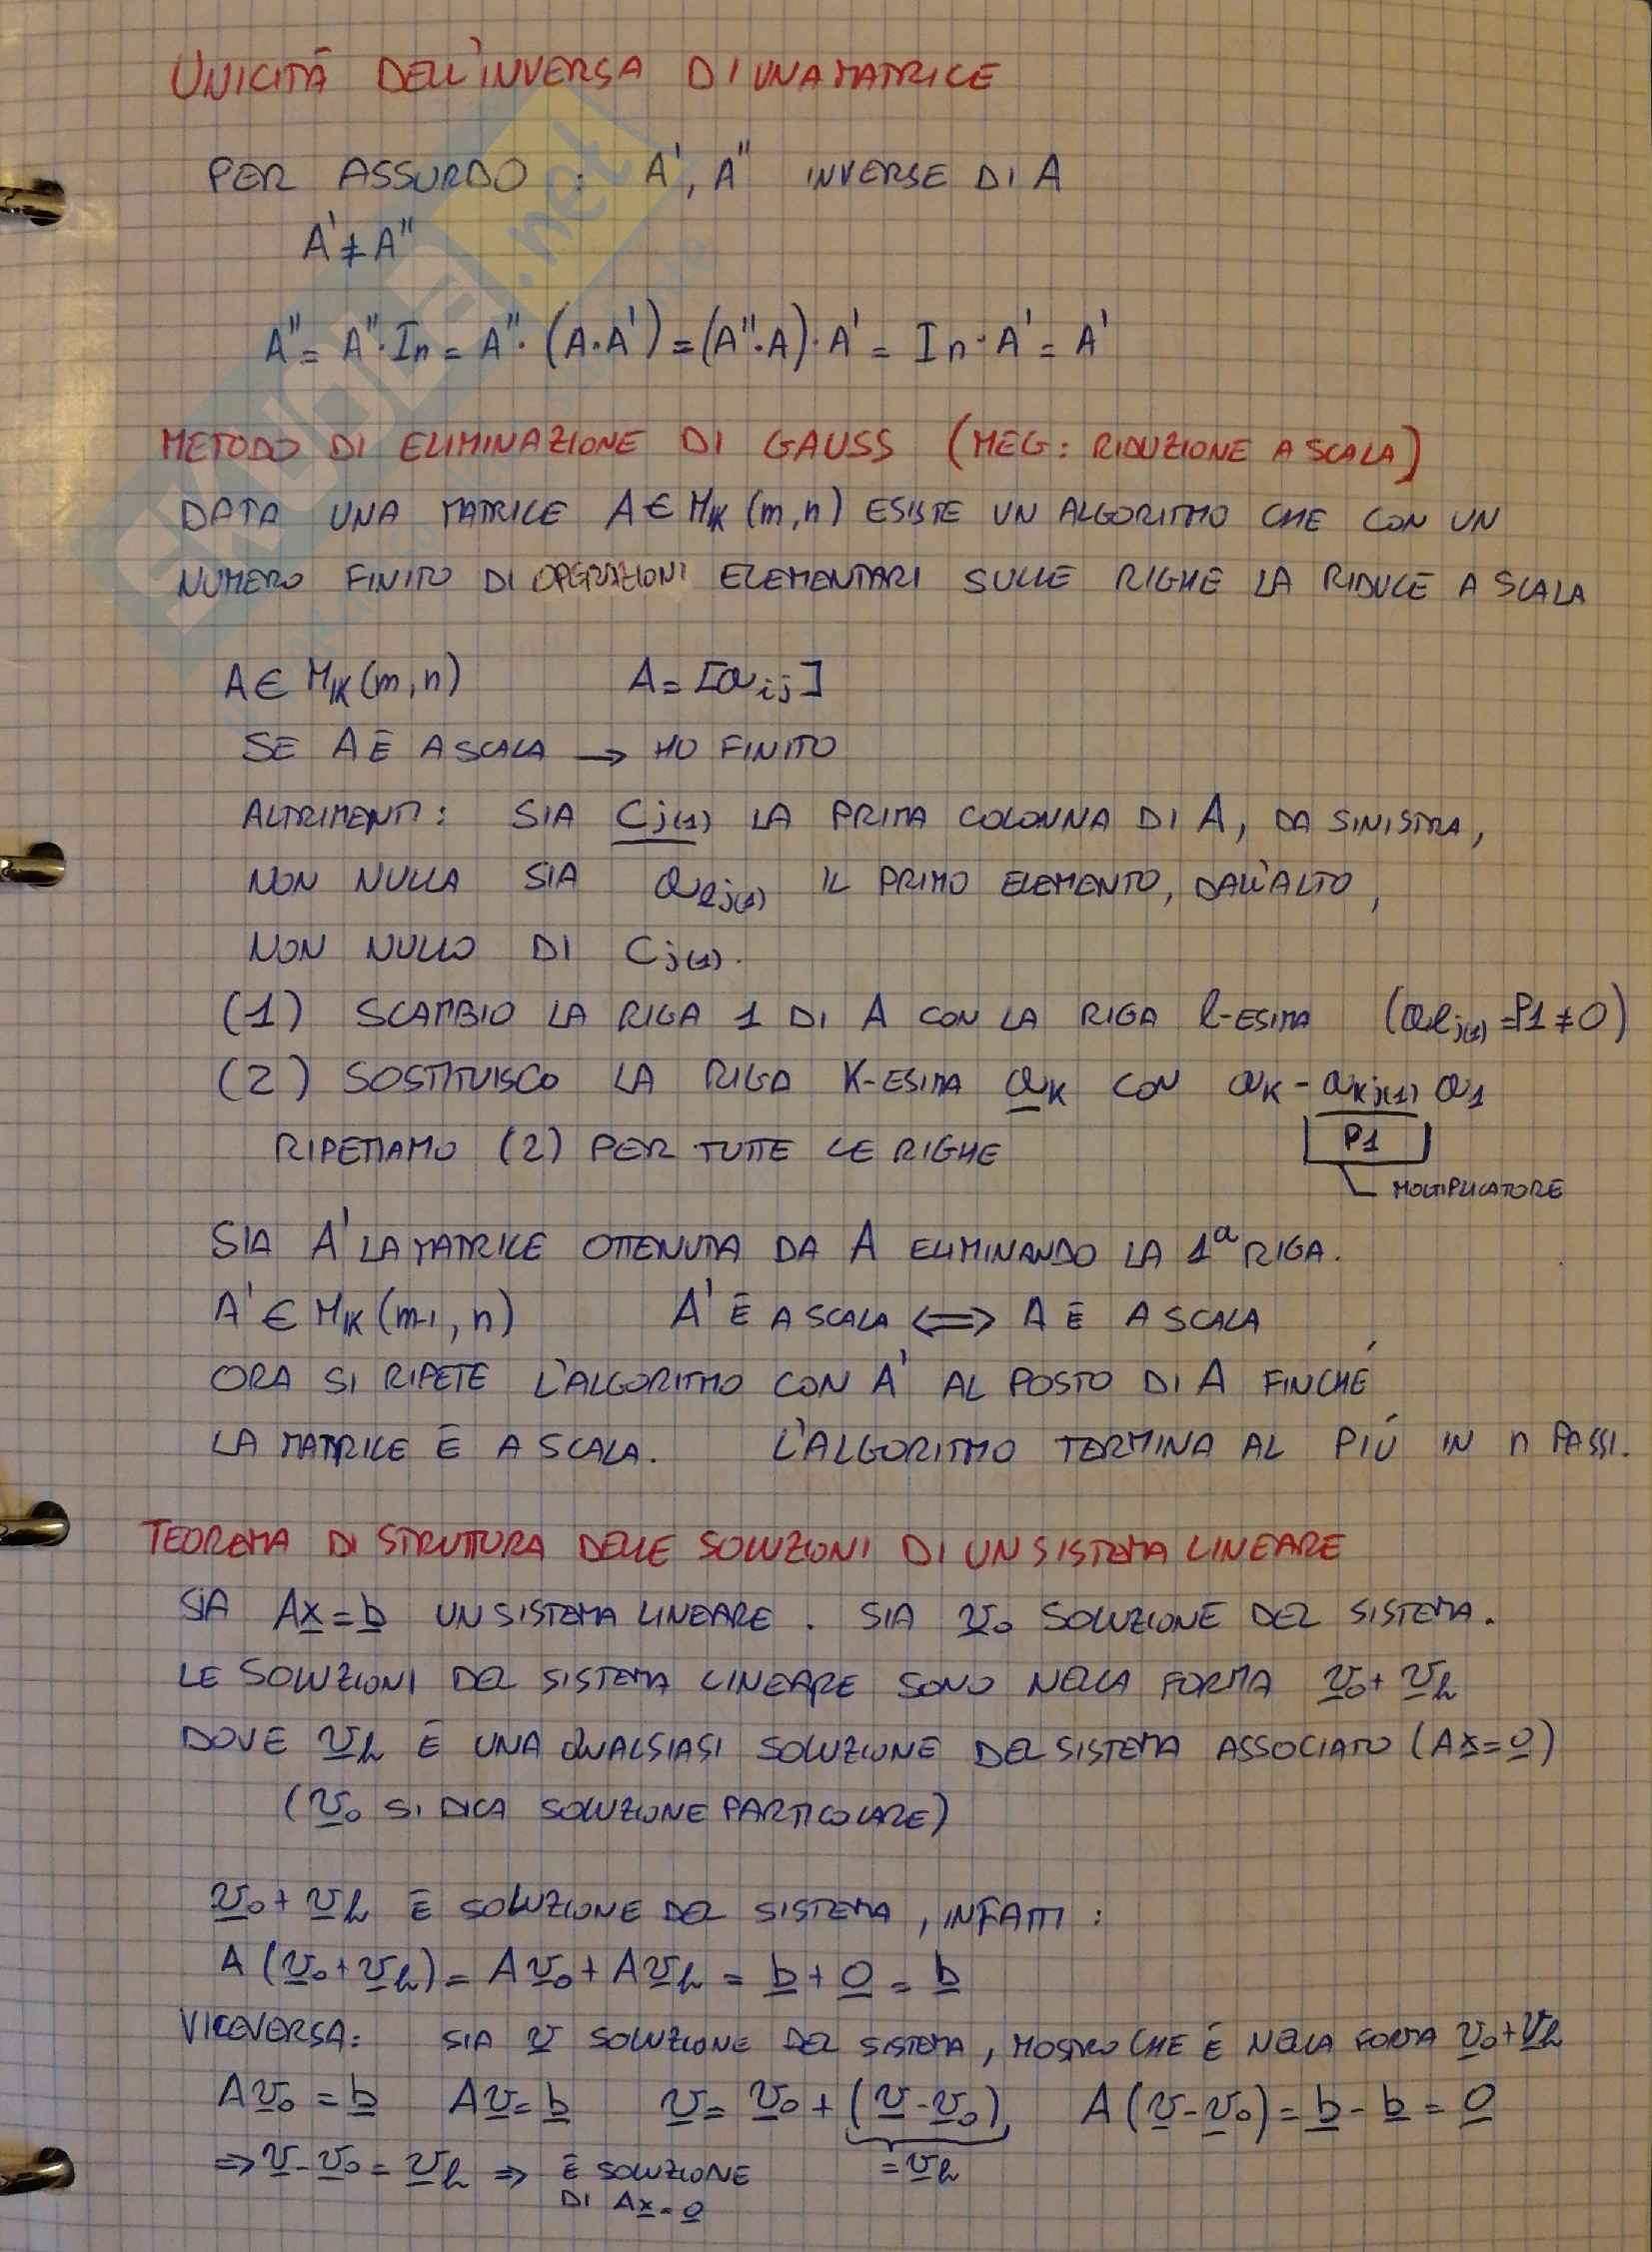 UNICITÀ DELL'INVERSA DI UNA MATRICE
PER ASSURDO : A', A'' INVERSE DI A
A' ≠ A''
A'' = A''·In = A''·(A·A') = (A''·A)·A' = In·A' = A'
METODO DI ELIMINAZIONE DI GAUSS (MEG: RIDUZIONE A SCALA)
DATA UNA MATRICE A ∈ M𝕂(m,n) ESISTE UN ALGORITMO CHE CON UN
NUMERO FINITO DI OPERAZIONI ELEMENTARI SULLE RIGHE LA RIDUCE A SCALA
A ∈ M𝕂(m,n) A = [aij]
SE A È A SCALA → HO FINITO
ALTRIMENTI: SIA Cj(1) LA PRIMA COLONNA DI A, DA SINISTRA,
NON NULLA SIA aℓj(1) IL PRIMO ELEMENTO, DALL'ALTO,
NON NULLO DI Cj(1).
(1) SCAMBIO LA RIGA 1 DI A CON LA RIGA ℓ-ESIMA (aℓj(1) = P1 ≠ 0)
(2) SOSTITUISCO LA RIGA K-ESIMA aK CON aK - aKj(1) a1
P1
RIPETIAMO (2) PER TUTTE LE RIGHE
MOLTIPLICATORE
SIA A' LA MATRICE OTTENUTA DA A ELIMINANDO LA 1ª RIGA.
A' ∈ M𝕂(m-1, n) A' È A SCALA ⟺ A È A SCALA
ORA SI RIPETE L'ALGORITMO CON A' AL POSTO DI A FINCHÉ
LA MATRICE È A SCALA. L'ALGORITMO TERMINA AL PIÙ IN n PASSI.
TEOREMA DI STRUTTURA DELLE SOLUZIONI DI UN SISTEMA LINEARE
SIA Ax = b UN SISTEMA LINEARE. SIA v0 SOLUZIONE DEL SISTEMA.
LE SOLUZIONI DEL SISTEMA LINEARE SONO NELLA FORMA v0 + vh
DOVE vh È UNA QUALSIASI SOLUZIONE DEL SISTEMA ASSOCIATO (Ax = 0)
(v0 SI DICA SOLUZIONE PARTICOLARE)
v0 + vh È SOLUZIONE DEL SISTEMA, INFATTI :
A(v0 + vh) = Av0 + Avh = b + 0 = b
VICEVERSA: SIA v SOLUZIONE DEL SISTEMA, MOSTRO CHE È NELLA FORMA v0 + vh
Av0 = b Av = b v = v0 + (v - v0) A(v - v0) = b - b = 0
= vh
⇒ v - v0 = vh ⇒ È SOLUZIONE
DI Ax = 0
SKUOLA.net